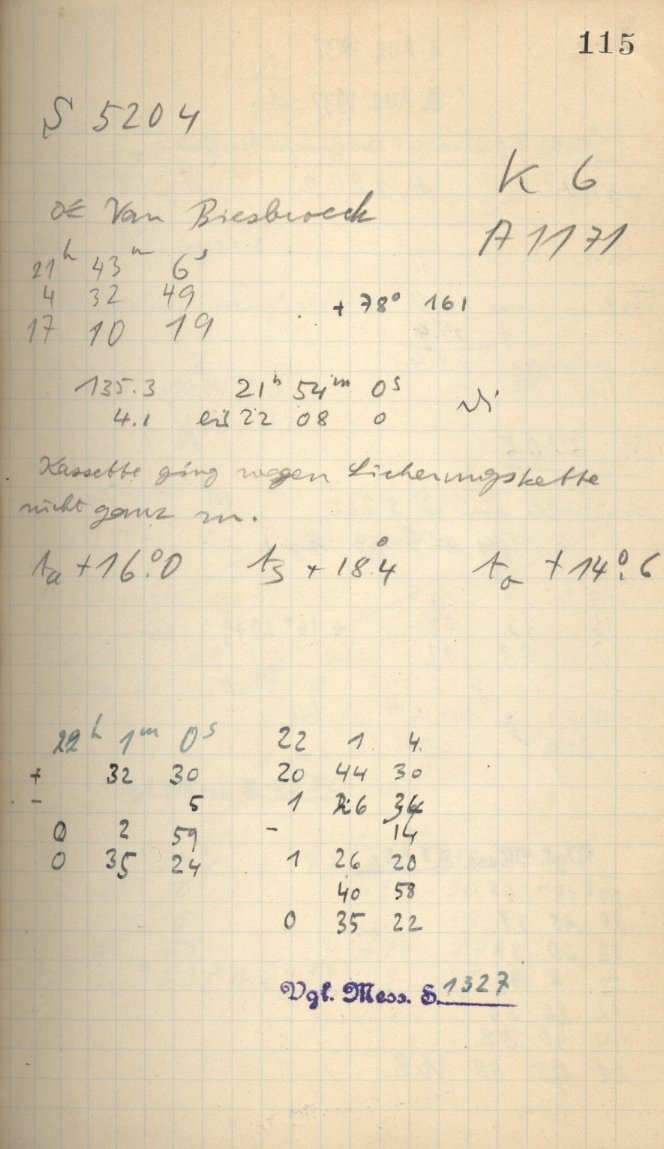 115
S 5204
K 6
☄ Van Biesbroeck
A 1171
21ʰ 43ᵐ 6ˢ
4 32 49
+ 78° 161
17 10 19
135.3 21ʰ 54ᵐ 0ˢ
4.1 bis 22 08 0
Kassette ging wegen Sicherungskette
nicht ganz zu.
+16°.0 + 18°.4 + 14°.6
22ʰ 1ᵐ 0ˢ 22 1 4
+ 32 30 20 44 30
- 5 1 16 34
0 2 59 - 14
0 35 24 1 26 20
40 58
0 35 22
Vgl. Mess. S. 1327